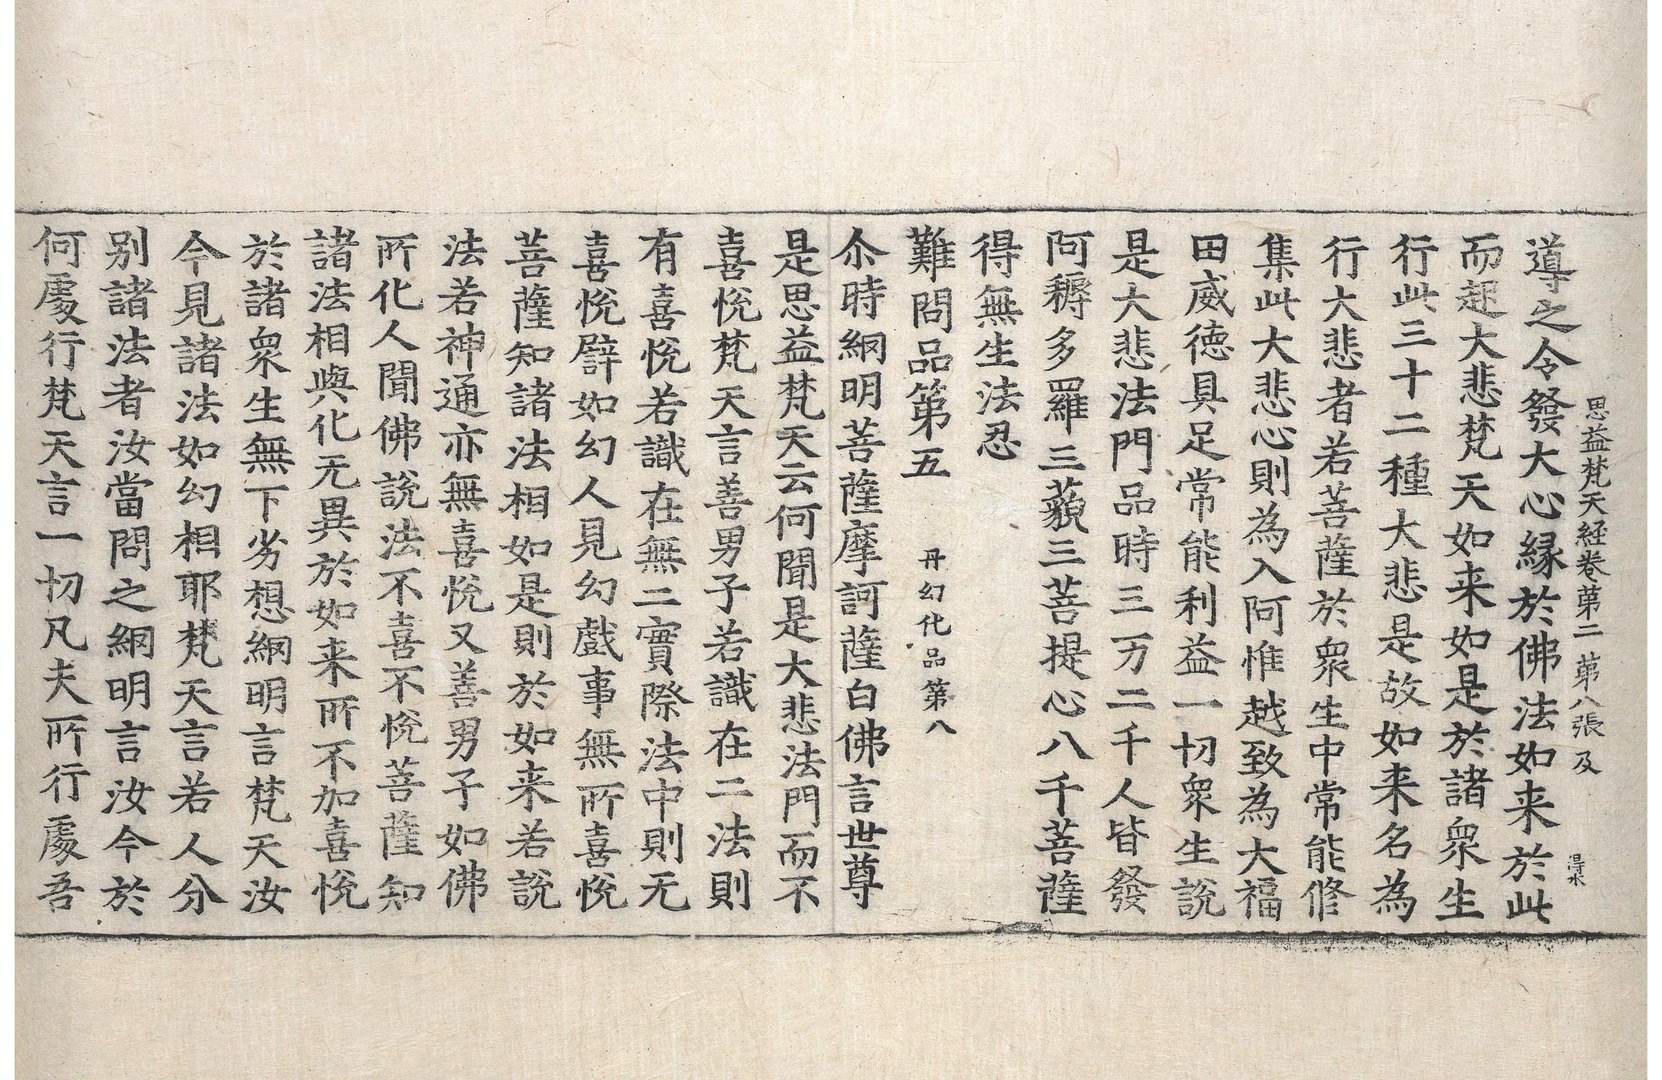 思益梵天経卷第二 第八張 及
得水
導之令發大心縁於佛法如来於此
而起大悲梵天如来如是於諸衆生
行此三十二種大悲是故如来名為
行大悲者若菩薩於衆生中常能修
集此大悲心則為入阿惟越致為大福
田威徳具足常能利益一切衆生說
是大悲法門品時三万二千人皆發
阿耨多羅三藐三菩提心八千菩薩
得無生法忍
難問品第五 丹幻化品第八
尒時網明菩薩摩訶薩白佛言世尊
是思益梵天云何聞是大悲法門而不
喜悅梵天言善男子若識在二法則
有喜悅若識在無二實際法中則无
喜悅譬如幻人見幻戲事無所喜悅
菩薩知諸法相如是則於如来若說
法若神通亦無喜悅又善男子如佛
所化人聞佛說法不喜不悅菩薩知
諸法相與化无異於如来所不加喜悅
於諸衆生無下劣想網明言梵天汝
今見諸法如幻相耶梵天言若人分
别諸法者汝當問之網明言汝今於
何處行梵天言一切凡夫所行處吾